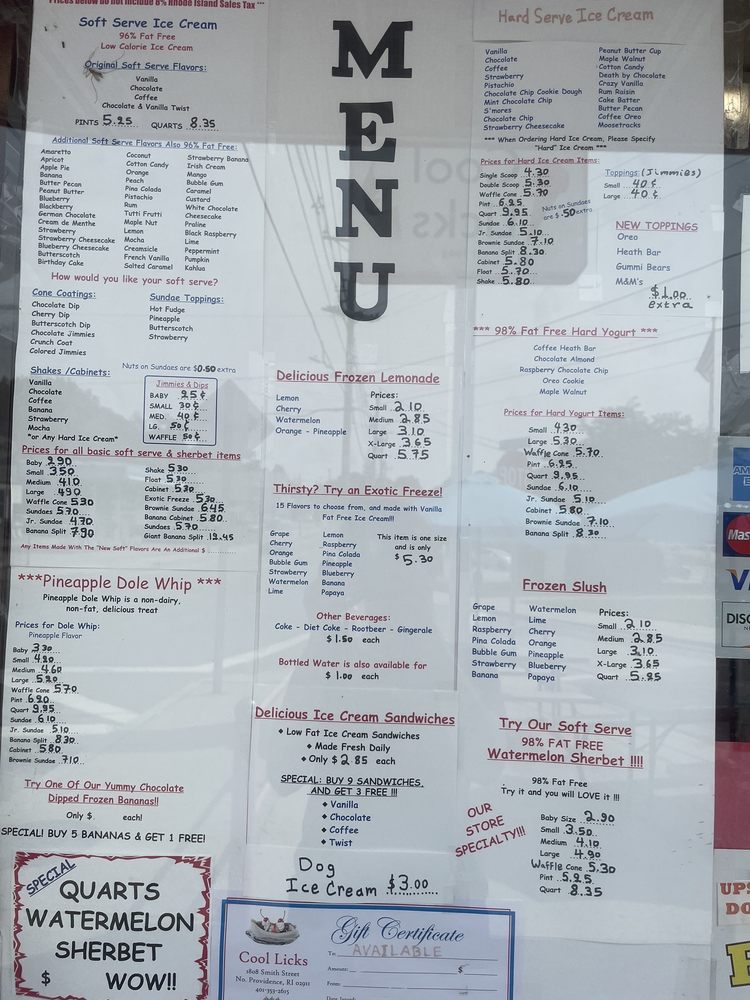 Prices below do not include 8% Rhode Island Sales Tax ***
Soft Serve Ice Cream
96% Fat Free
Low Calorie Ice Cream
Original Soft Serve Flavors:
Vanilla
Chocolate
Coffee
Chocolate & Vanilla Twist
PINTS 5.25 QUARTS 8.35
Additional Soft Serve Flavors Also 96% Fat Free:
Amaretto
Apricot
Apple Pie
Banana
Butter Pecan
Peanut Butter
Blueberry
Blackberry
German Chocolate
Cream de Menthe
Strawberry
Strawberry Cheesecake
Blueberry Cheesecake
Butterscotch
Birthday Cake
Coconut
Cotton Candy
Orange
Peach
Pina Colada
Pistachio
Rum
Tutti Frutti
Maple Nut
Lemon
Mocha
Creamsicle
French Vanilla
Salted Caramel
Strawberry Banana
Irish Cream
Mango
Bubble Gum
Caramel
Custard
White Chocolate
Cheesecake
Praline
Black Raspberry
Lime
Peppermint
Pumpkin
Kahlua
How would you like your soft serve?
Cone Coatings:
Chocolate Dip
Cherry Dip
Butterscotch Dip
Chocolate Jimmies
Crunch Coat
Colored Jimmies
Sundae Toppings:
Hot Fudge
Pineapple
Butterscotch
Strawberry
Nuts on Sundaes are $0.50 extra
Shakes /Cabinets:
Vanilla
Chocolate
Coffee
Banana
Strawberry
Mocha
*or Any Hard Ice Cream*
Jimmies & Dips
BABY 25¢
SMALL 30¢
MED. 40¢
LG. 50¢
WAFFLE 50¢
Prices for all basic soft serve & sherbet items
Baby 2.90
Small 3.50
Medium 4.10
Large 4.90
Waffle Cone 5.30
Sundaes 5.70
Jr. Sundae 4.70
Banana Split 7.90
Shake 5.30
Float 5.30
Cabinet 5.30
Exotic Freeze 5.30
Brownie Sundae 6.45
Banana Cabinet 5.80
Sundaes 5.70
Giant Banana Split 13.45
Any Items Made With The "New Soft" Flavors Are An Additional $
***Pineapple Dole Whip ***
Pineapple Dole Whip is a non-dairy,
non-fat, delicious treat
Prices for Dole Whip:
Pineapple Flavor
Baby 3.30
Small 4.20
Medium 4.60
Large 5.20
Waffle Cone 5.70
Pint 6.20
Quart 9.95
Sundae 6.10
Jr. Sundae 5.10
Banana Split 8.30
Cabinet 5.80
Brownie Sundae 7.10
Try One Of Our Yummy Chocolate
Dipped Frozen Bananas!!
Only $ each!
SPECIAL! BUY 5 BANANAS & GET 1 FREE!
SPECIAL
QUARTS
WATERMELON
SHERBET
$ WOW!!
MENU
Delicious Frozen Lemonade
Lemon
Cherry
Watermelon
Orange - Pineapple
Prices:
Small 2.10
Medium 2.85
Large 3.10
X-Large 3.65
Quart 5.75
Thirsty? Try an Exotic Freeze!
15 Flavors to choose from, and made with Vanilla
Fat Free Ice Cream!!!
Grape
Cherry
Orange
Bubble Gum
Strawberry
Watermelon
Lime
Lemon
Raspberry
Pina Colada
Pineapple
Blueberry
Banana
Papaya
This item is one size
and is only
$5.30
Other Beverages:
Coke - Diet Coke - Rootbeer - Gingerale
$1.50 each
Bottled Water is also available for
$1.00 each
Delicious Ice Cream Sandwiches
◆ Low Fat Ice Cream Sandwiches
◆ Made Fresh Daily
◆ Only $2.85 each
SPECIAL: BUY 9 SANDWICHES,
AND GET 3 FREE !!!
◆ Vanilla
◆ Chocolate
◆ Coffee
◆ Twist
Dog
Ice Cream $3.00
Gift Certificate
To: AVAILABLE
Amount: $
From:
Cool Licks
1808 Smith Street
No. Providence, RI 02911
401-353-2615
Hard Serve Ice Cream
Vanilla
Chocolate
Coffee
Strawberry
Pistachio
Chocolate Chip Cookie Dough
Mint Chocolate Chip
S'mores
Chocolate Chip
Strawberry Cheesecake
Peanut Butter Cup
Maple Walnut
Cotton Candy
Death by Chocolate
Crazy Vanilla
Rum Raisin
Cake Batter
Butter Pecan
Coffee Oreo
Moosetracks
*** When Ordering Hard Ice Cream, Please Specify
"Hard" Ice Cream ***
Prices for Hard Ice Cream Items:
Single Scoop 4.30
Double Scoop 5.30
Waffle Cone 5.70
Pint 6.25
Quart 9.95
Sundae 6.10
Jr. Sundae 5.10
Brownie Sundae 7.10
Banana Split 8.30
Cabinet 5.80
Float 5.70
Shake 5.80
Nuts on Sundaes
are $.50 extra
Toppings: (Jimmies)
Small 40¢
Large 40¢
NEW TOPPINGS
Oreo
Heath Bar
Gummi Bears
M&M's
$1.00
extra
*** 98% Fat Free Hard Yogurt ***
Coffee Heath Bar
Chocolate Almond
Raspberry Chocolate Chip
Oreo Cookie
Maple Walnut
Prices for Hard Yogurt Items:
Small 4.30
Large 5.30
Waffle Cone 5.70
Pint 6.25
Quart 9.95
Sundae 6.10
Jr. Sundae 5.10
Cabinet 5.80
Brownie Sundae 7.10
Banana Split 8.30
Frozen Slush
Grape
Lemon
Raspberry
Pina Colada
Bubble Gum
Strawberry
Banana
Watermelon
Lime
Cherry
Orange
Pineapple
Blueberry
Papaya
Prices:
Small 2.10
Medium 2.85
Large 3.10
X-Large 3.65
Quart 5.85
Try Our Soft Serve
98% FAT FREE
Watermelon Sherbet !!!!
98% Fat Free
Try it and you will LOVE it !!!
OUR
STORE
SPECIALTY!!!
Baby Size 2.90
Small 3.50
Medium 4.10
Large 4.90
Waffle Cone 5.30
Pint 5.25
Quart 8.35